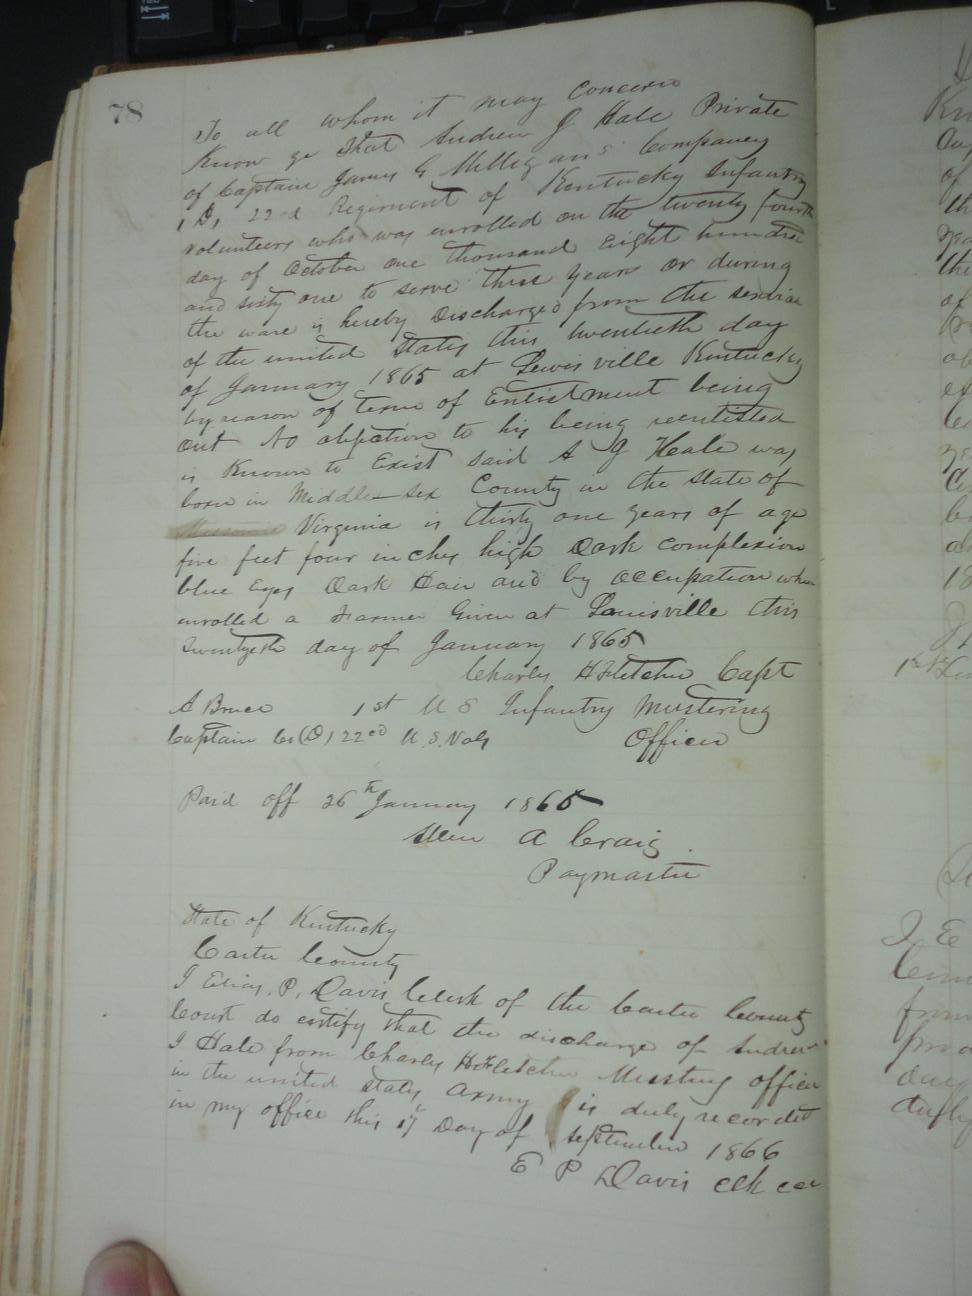 78
To all whom it may Concern
Know ye that Andrew J Hale Private
of Captain James G Milligans Companey
(D) 22nd Regiment of Kentucky Infantry
volunteers who was enrolled on the twenty fourth
day of October one thousand Eight hundred
and sixty one to serve three years or during
the ware is hereby Discharged from the servise
of the united States this twentieth day
of January 1865 at Lewisville Kentucky
by reason of terme of Enlistment being
out No objection to his being reentisted
is Known to Exist said A J Hale was
born in Middle-sex County in the State of
Virginia is thirty one years of age
five feet four inches high Dark complexion
blue Eyes Dark Hair and by occupation when
enrolled a Farmer Given at Louisville this
twentyeth day of January 1865
Charles H Fletcher Capt
A Bruce 1st U S Infantry Mustering
Captain Co (D) 22nd U.S. Vols Officer
Paid off 26th January 1865
A Craig
Paymaster
State of Kentucky
Carter County
I Elias P. Davis Clerk of the Carter County
Court do certify that the discharge of Andrew
J Hale from Charles H Fletcher Musting officer
in the united states Army is duly recorded
in my office this 17 Day of September 1866
E P Davis clk